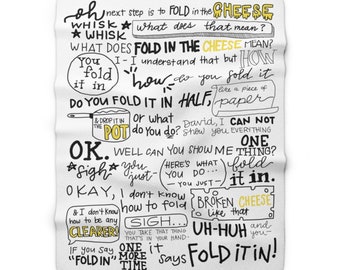 oh next step is to FOLD in the CHEESE
WHISK WHISK what does that mean?
WHAT DOES FOLD IN THE CHEESE MEAN?
You fold it in
I-I understand that but HOW
how do you fold it
DO YOU FOLD IT IN HALF,
like a piece of paper
& DROP IT IN THE POT
Or what do you do?
David, I CAN NOT show you EVERYTHING
OK. WELL CAN YOU SHOW ME ONE THING?
*sigh* you just-
HERE'S WHAT YOU DO... YOU JUST
fold it in.
OKAY,
I don't know how to fold
BROKEN CHEESE like that
& I don't know how to be any CLEARER!
SIGH...
YOU TAKE THAT THING THAT'S IN YOUR HAND
UH-HUH and you-
IF YOU SAY "FOLD IN" ONE MORE TIME
it says FOLD IT IN!